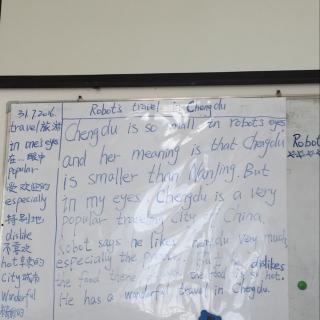 31.7.2016.
travel 旅游
in one's eyes
在...眼中
popular
受欢迎的
especially
特别地
dislike
不喜欢
hot 辛辣的
City 城市
Wonderful
Robot's travel in Chengdu
Chengdu is so small in robot's eyes
and her meaning is that Chengdu
is smaller than Nanjing. But
in my eyes, Chengdu is a very
popular travel city in China.
Robot says he likes Chengdu very much,
especially the But he dislikes
the food there the food is so hot.
He has a wonderful travel in Chengdu.
Robot